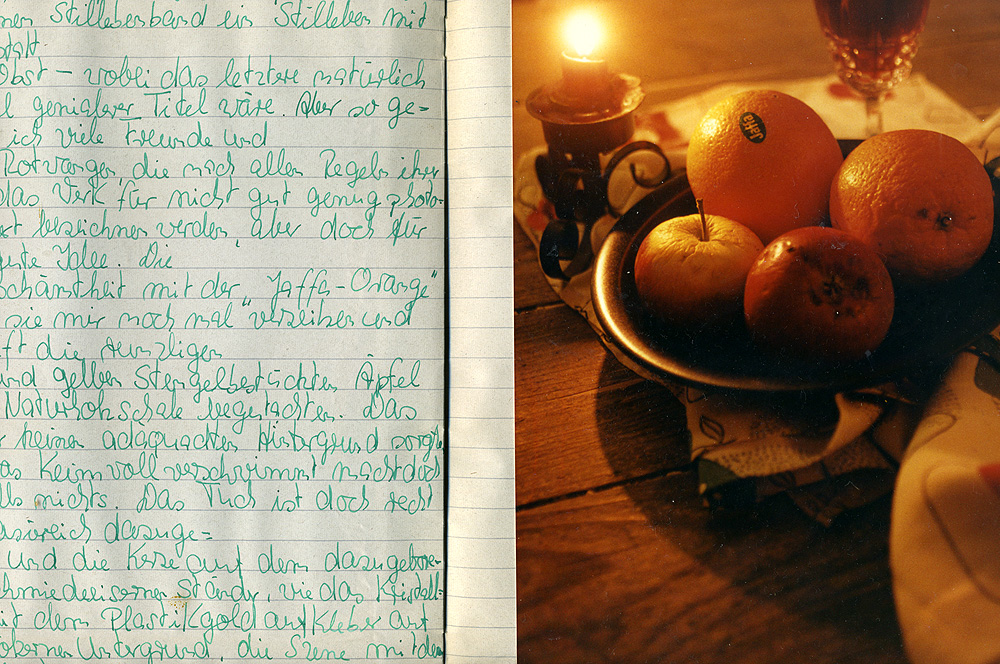 nen Stillebenband ein Stilleben mit
statt
Obst – wobei das letztere natürlich
l genialerer Titel wäre. Aber so ge=
ich viele Freunde und
Rotwangen, die nach allen Regeln ihrer
das Werk für nicht gut genug photo-
ert bezeichnen werden, aber doch für
gute Idee. Die
schämtheit mit der "Jaffa-Orange"
sie mir noch mal verzeihen und
ft die runzligen
und gelben Stengelbestückten Äpfel
Naturholzschale begutachten. Das
r keinen adäquaten Hintergrund sorgte
as Keim voll verschwimmt macht doch
lls nichts. Das Tuch ist doch recht
dazuge=
und die Kerze auf dem dazugebore-
chmiedeeisernen Ständer, wie das Kristall-
it dem Plastikgoldaufkleber auf
Untergrund, die Szene mit dem
Jaffa